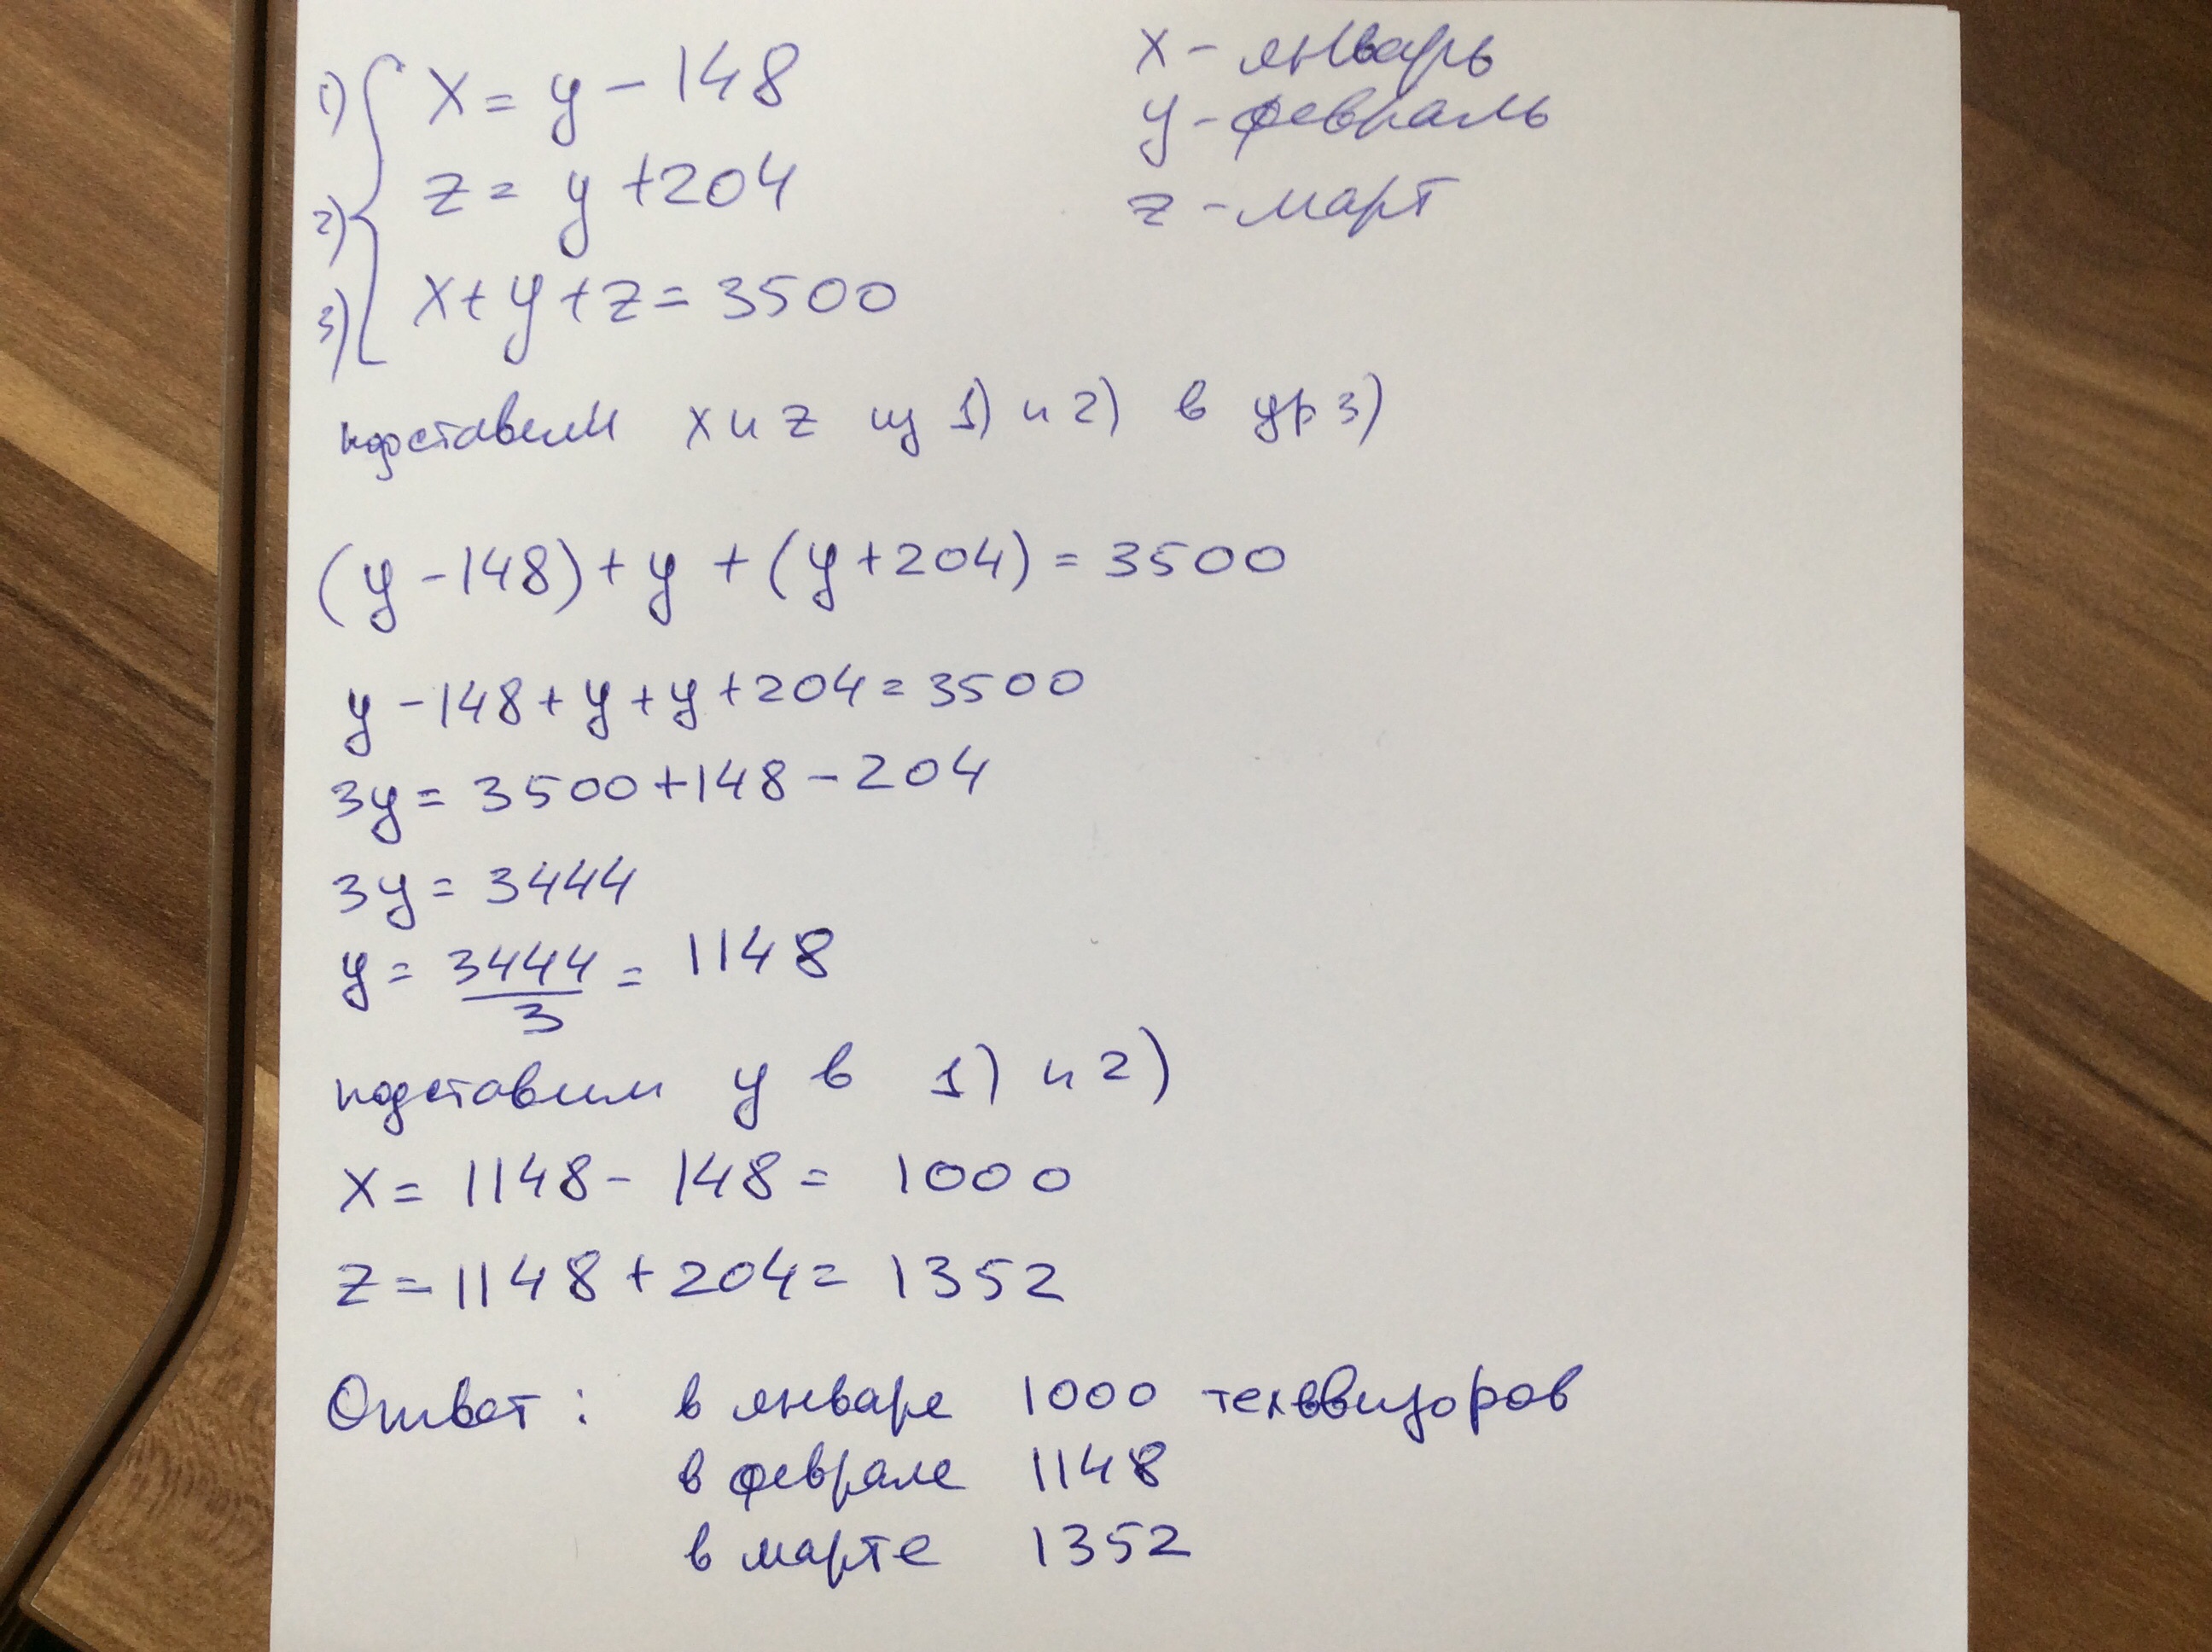 1) x = y - 148
x - январь
y - февраль
2) z = y + 204
z - март
3) x + y + z = 3500
подставим x и z из 1) и 2) в ур 3)
(y - 148) + y + (y + 204) = 3500
y - 148 + y + y + 204 = 3500
3y = 3500 + 148 - 204
3y = 3444
y = 3444/3 = 1148
подставим y в 1) и 2)
x = 1148 - 148 = 1000
z = 1148 + 204 = 1352
Ответ: в январе 1000 телевизоров
в феврале 1148
в марте 1352